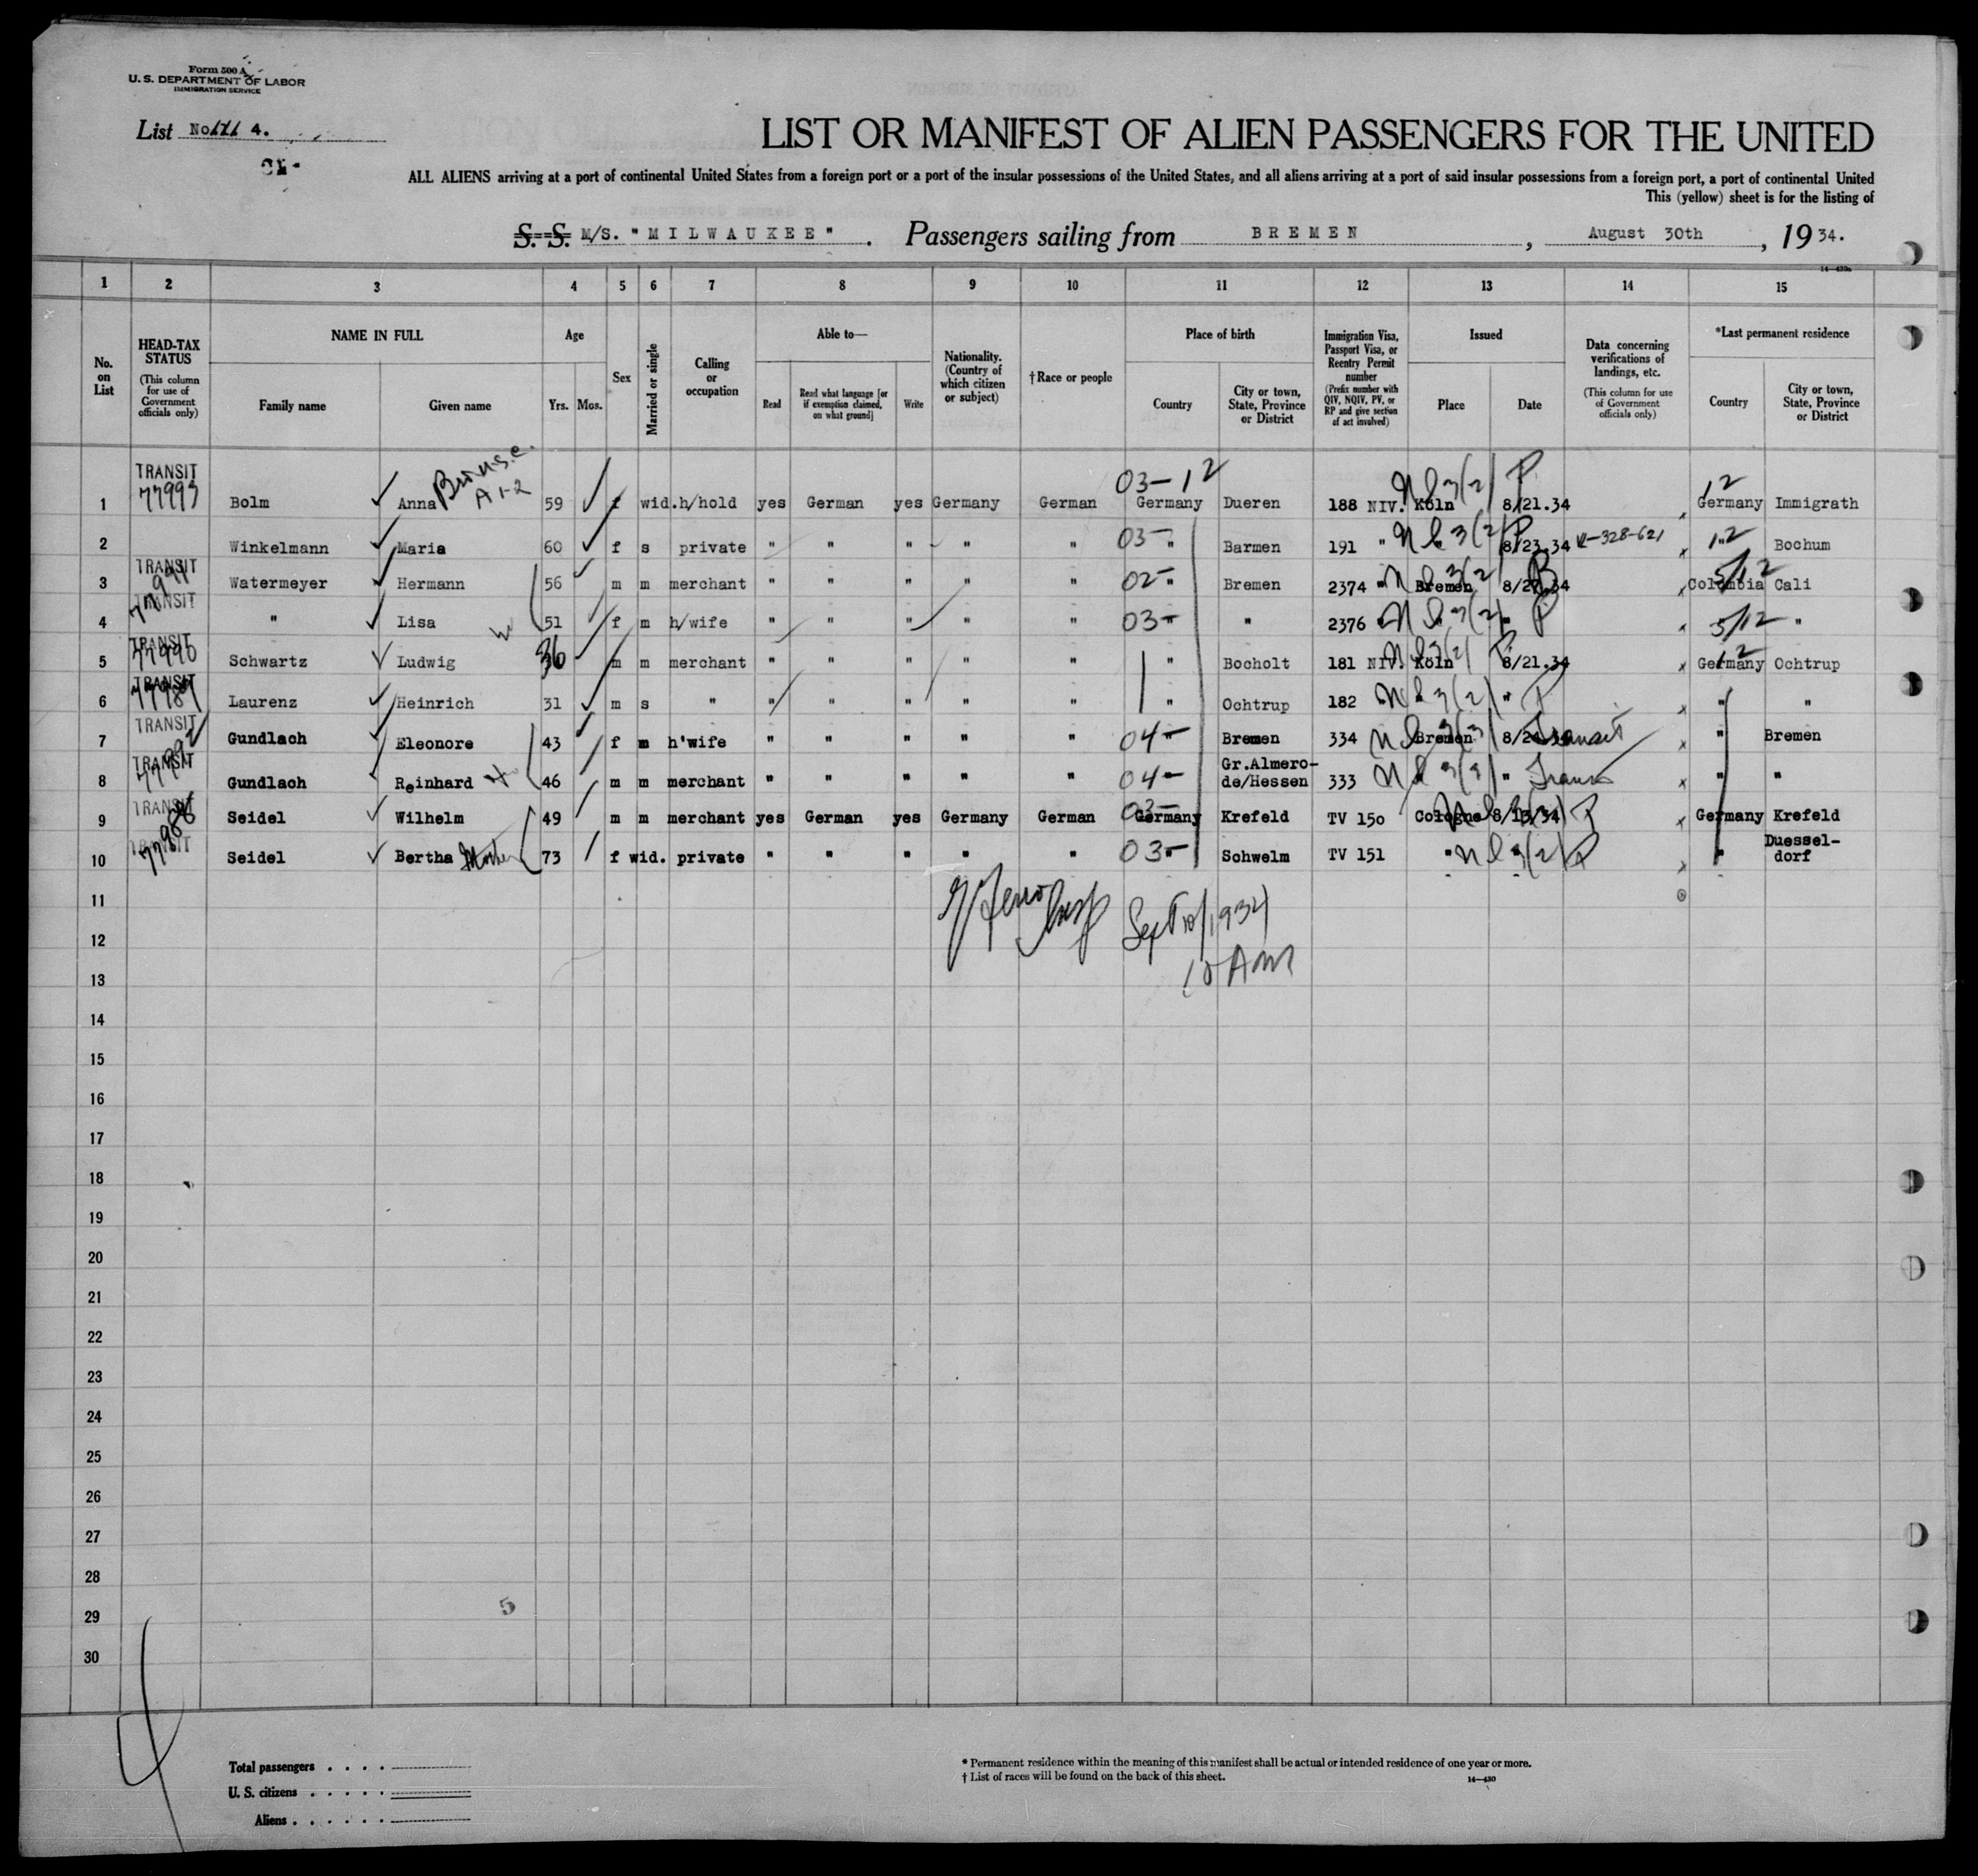 Form 500 A
U. S. DEPARTMENT OF LABOR
IMMIGRATION SERVICE
List No 4.
LIST OR MANIFEST OF ALIEN PASSENGERS FOR THE UNITED
ALL ALIENS arriving at a port of continental United States from a foreign port or a port of the insular possessions of the United States, and all aliens arriving at a port of said insular possessions from a foreign port, a port of continental United
This (yellow) sheet is for the listing of
S. S. M/S. "MILWAUKEE". Passengers sailing from BREMEN, August 30th, 1934.
14—430a
1 2 3 4 5 6 7 8 9 10 11 12 13 14 15
No. on List
HEAD-TAX STATUS (This column for use of Government officials only)
NAME IN FULL
Family name
Given name
Age
Yrs. Mos.
Sex
Married or single
Calling or occupation
Able to—
Read
Read what language [or if exemption claimed, on what ground]
Write
Nationality. (Country of which citizen or subject)
†Race or people
Place of birth
Country
City or town, State, Province or District
Immigration Visa, Passport Visa, or Reentry Permit number (Prefix number with QIV, NQIV, PV, or RP and give section of act involved)
Issued
Place
Date
Data concerning verifications of landings, etc. (This column for use of Government officials only)
*Last permanent residence
Country
City or town, State, Province or District
03-12 Nl 3(2) P 12
1 TRANSIT 77993 Bolm Anna A 1-2 59 f wid. h/hold yes German yes Germany German Germany Dueren 188 NIV. Köln 8/21.34 Germany Immigrath
2 Winkelmann Maria 60 f s private " " " " " 03- " Barmen 191 " Nl 3(2) P 8/23.34 R-328-621 12 Bochum
3 TRANSIT 77991 Watermeyer Hermann 56 m m merchant " " " " " 02- " Bremen 2374 " Nl 3(2) Bremen 8/27.34 5/12 Columbia Cali
4 TRANSIT " Lisa W 51 f m h/wife " " " " " 03- " 2376 " Nl 3(2) " P 5/12 "
5 TRANSIT 77990 Schwartz Ludwig 36 m m merchant " " " " " " Bocholt 181 NIV. Nl 3(2) Köln P 8/21.34 12 Germany Ochtrup
6 TRANSIT 77989 Laurenz Heinrich 31 m s " " " " " " Ochtrup 182 " Nl 3(2) " P " "
7 TRANSIT 77992 Gundlach Eleonore 43 f m h'wife " " " " " 04- " Bremen 334 Nl 3(3) Bremen Transit " Bremen
8 TRANSIT Gundlach Reinhard H 46 m m merchant " " " " " 04- " Gr.Almero-de/Hessen 333 Nl 3(3) " " "
9 TRANSIT 77988 Seidel Wilhelm 49 m m merchant yes German yes Germany German 03- Germany Krefeld TV 150 Cologne 8/13/34 P Germany Krefeld
10 TRANSIT Seidel Bertha Mother 73 f wid. private " " " " " 03- " Schwelm TV 151 " Nl 3(2) P " Duessel-dorf
11
Insp Sept 10/1934
12
10 AM
13
14
15
16
17
18
19
20
21
22
23
24
25
26
27
28
29
5
30
4
Total passengers . . . .
U. S. citizens . . . . .
Aliens . . . . . .
* Permanent residence within the meaning of this manifest shall be actual or intended residence of one year or more.
† List of races will be found on the back of this sheet.
14—430